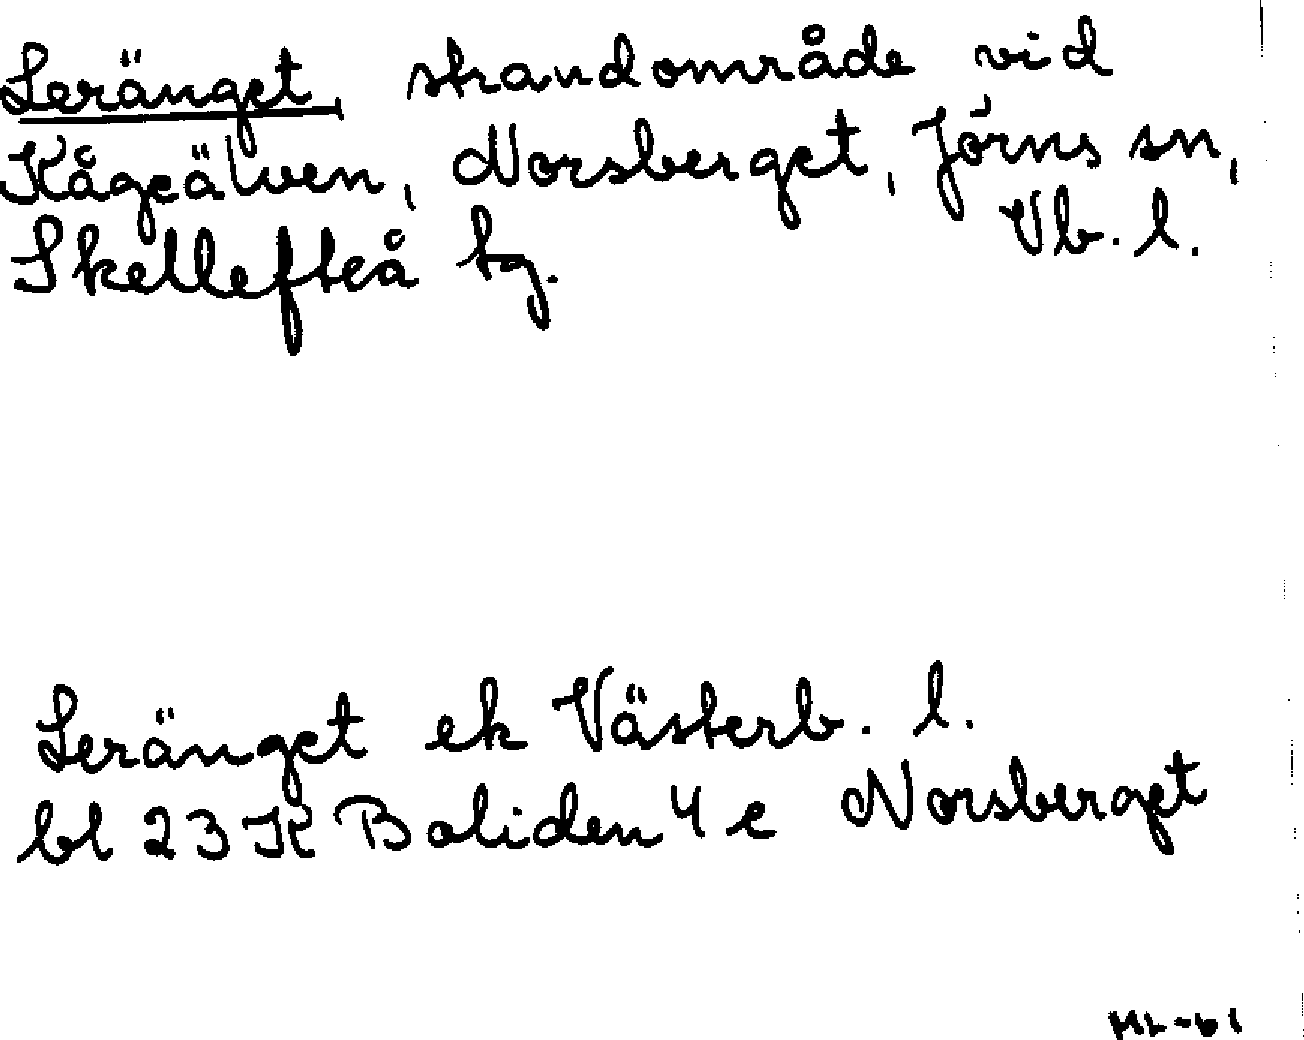 Leränget, strandområde vid
Kågeälven, Norsberget, Jörns sn,
Skellefteå tg. Vb. l.
Leränget ek Västerb. l.
bl 23 K Boliden 4 e Norsberget